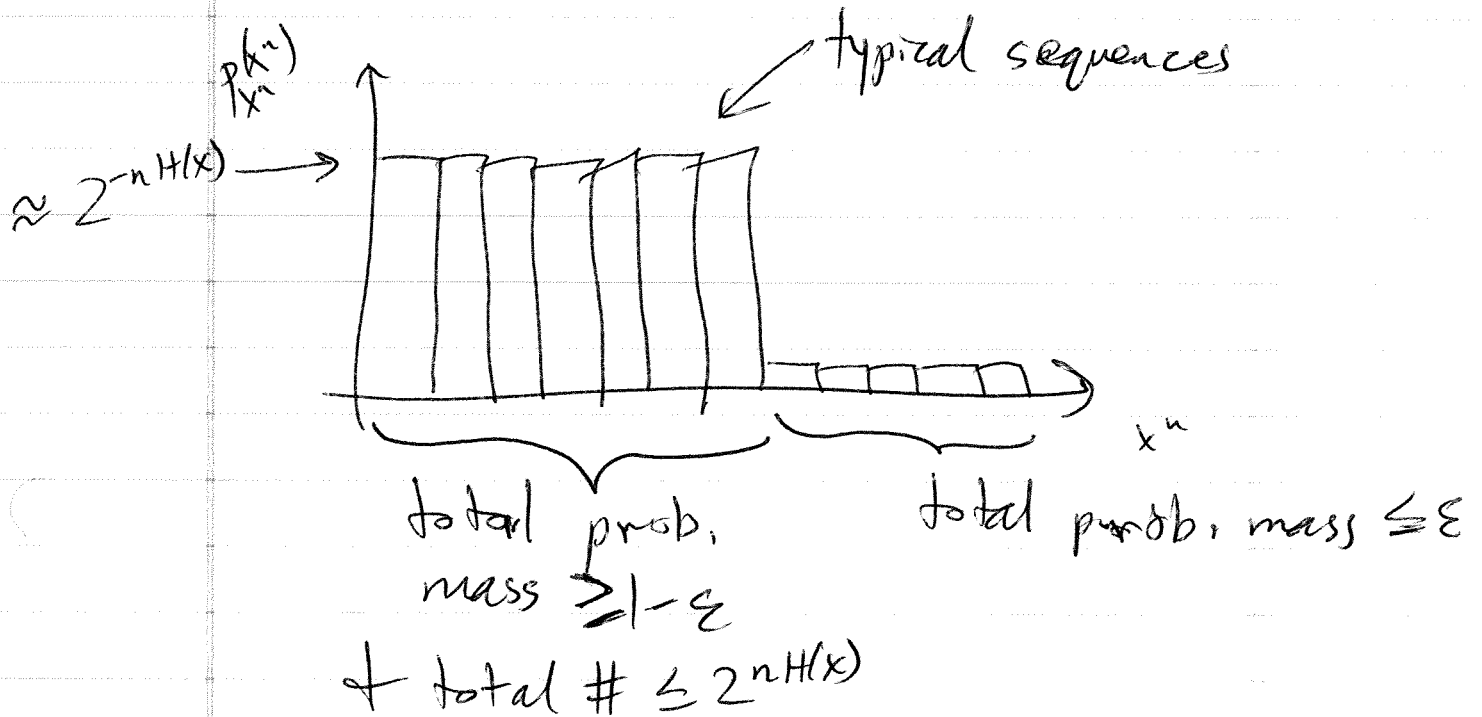 p_{X^n}(x^n)
typical sequences
≈ 2^{-nH(X)}
x^n
total prob.
mass ≥ 1-ε
+ total # ≤ 2^{nH(X)}
total prob. mass ≤ ε